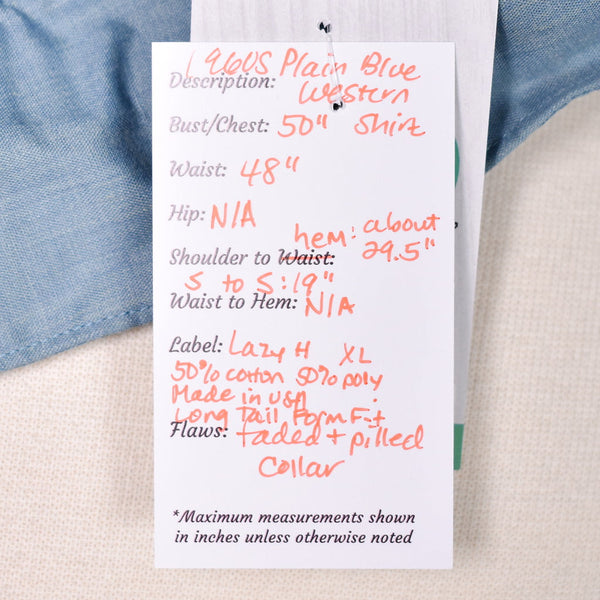 1960s Plain Blue
Description: Western
Bust/Chest: 50" Shirt
Waist: 48"
Hip: N/A
hem: about
Shoulder to Waist: 29.5"
S to S: 19"
Waist to Hem: N/A
Label: Lazy H XL
50% cotton 50% poly
Made in USA
Long Tail Form Fit
Flaws: faded + pilled
collar
*Maximum measurements shown
in inches unless otherwise noted